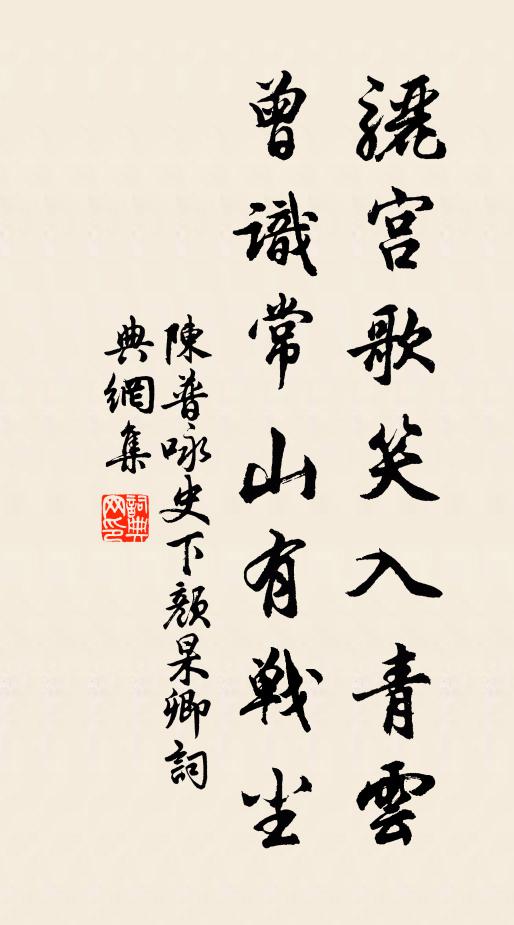 驪宫歌笑入青雲
曾識常山有戰尘
陳普咏史下顏杲卿詞
典網集
詞典網印